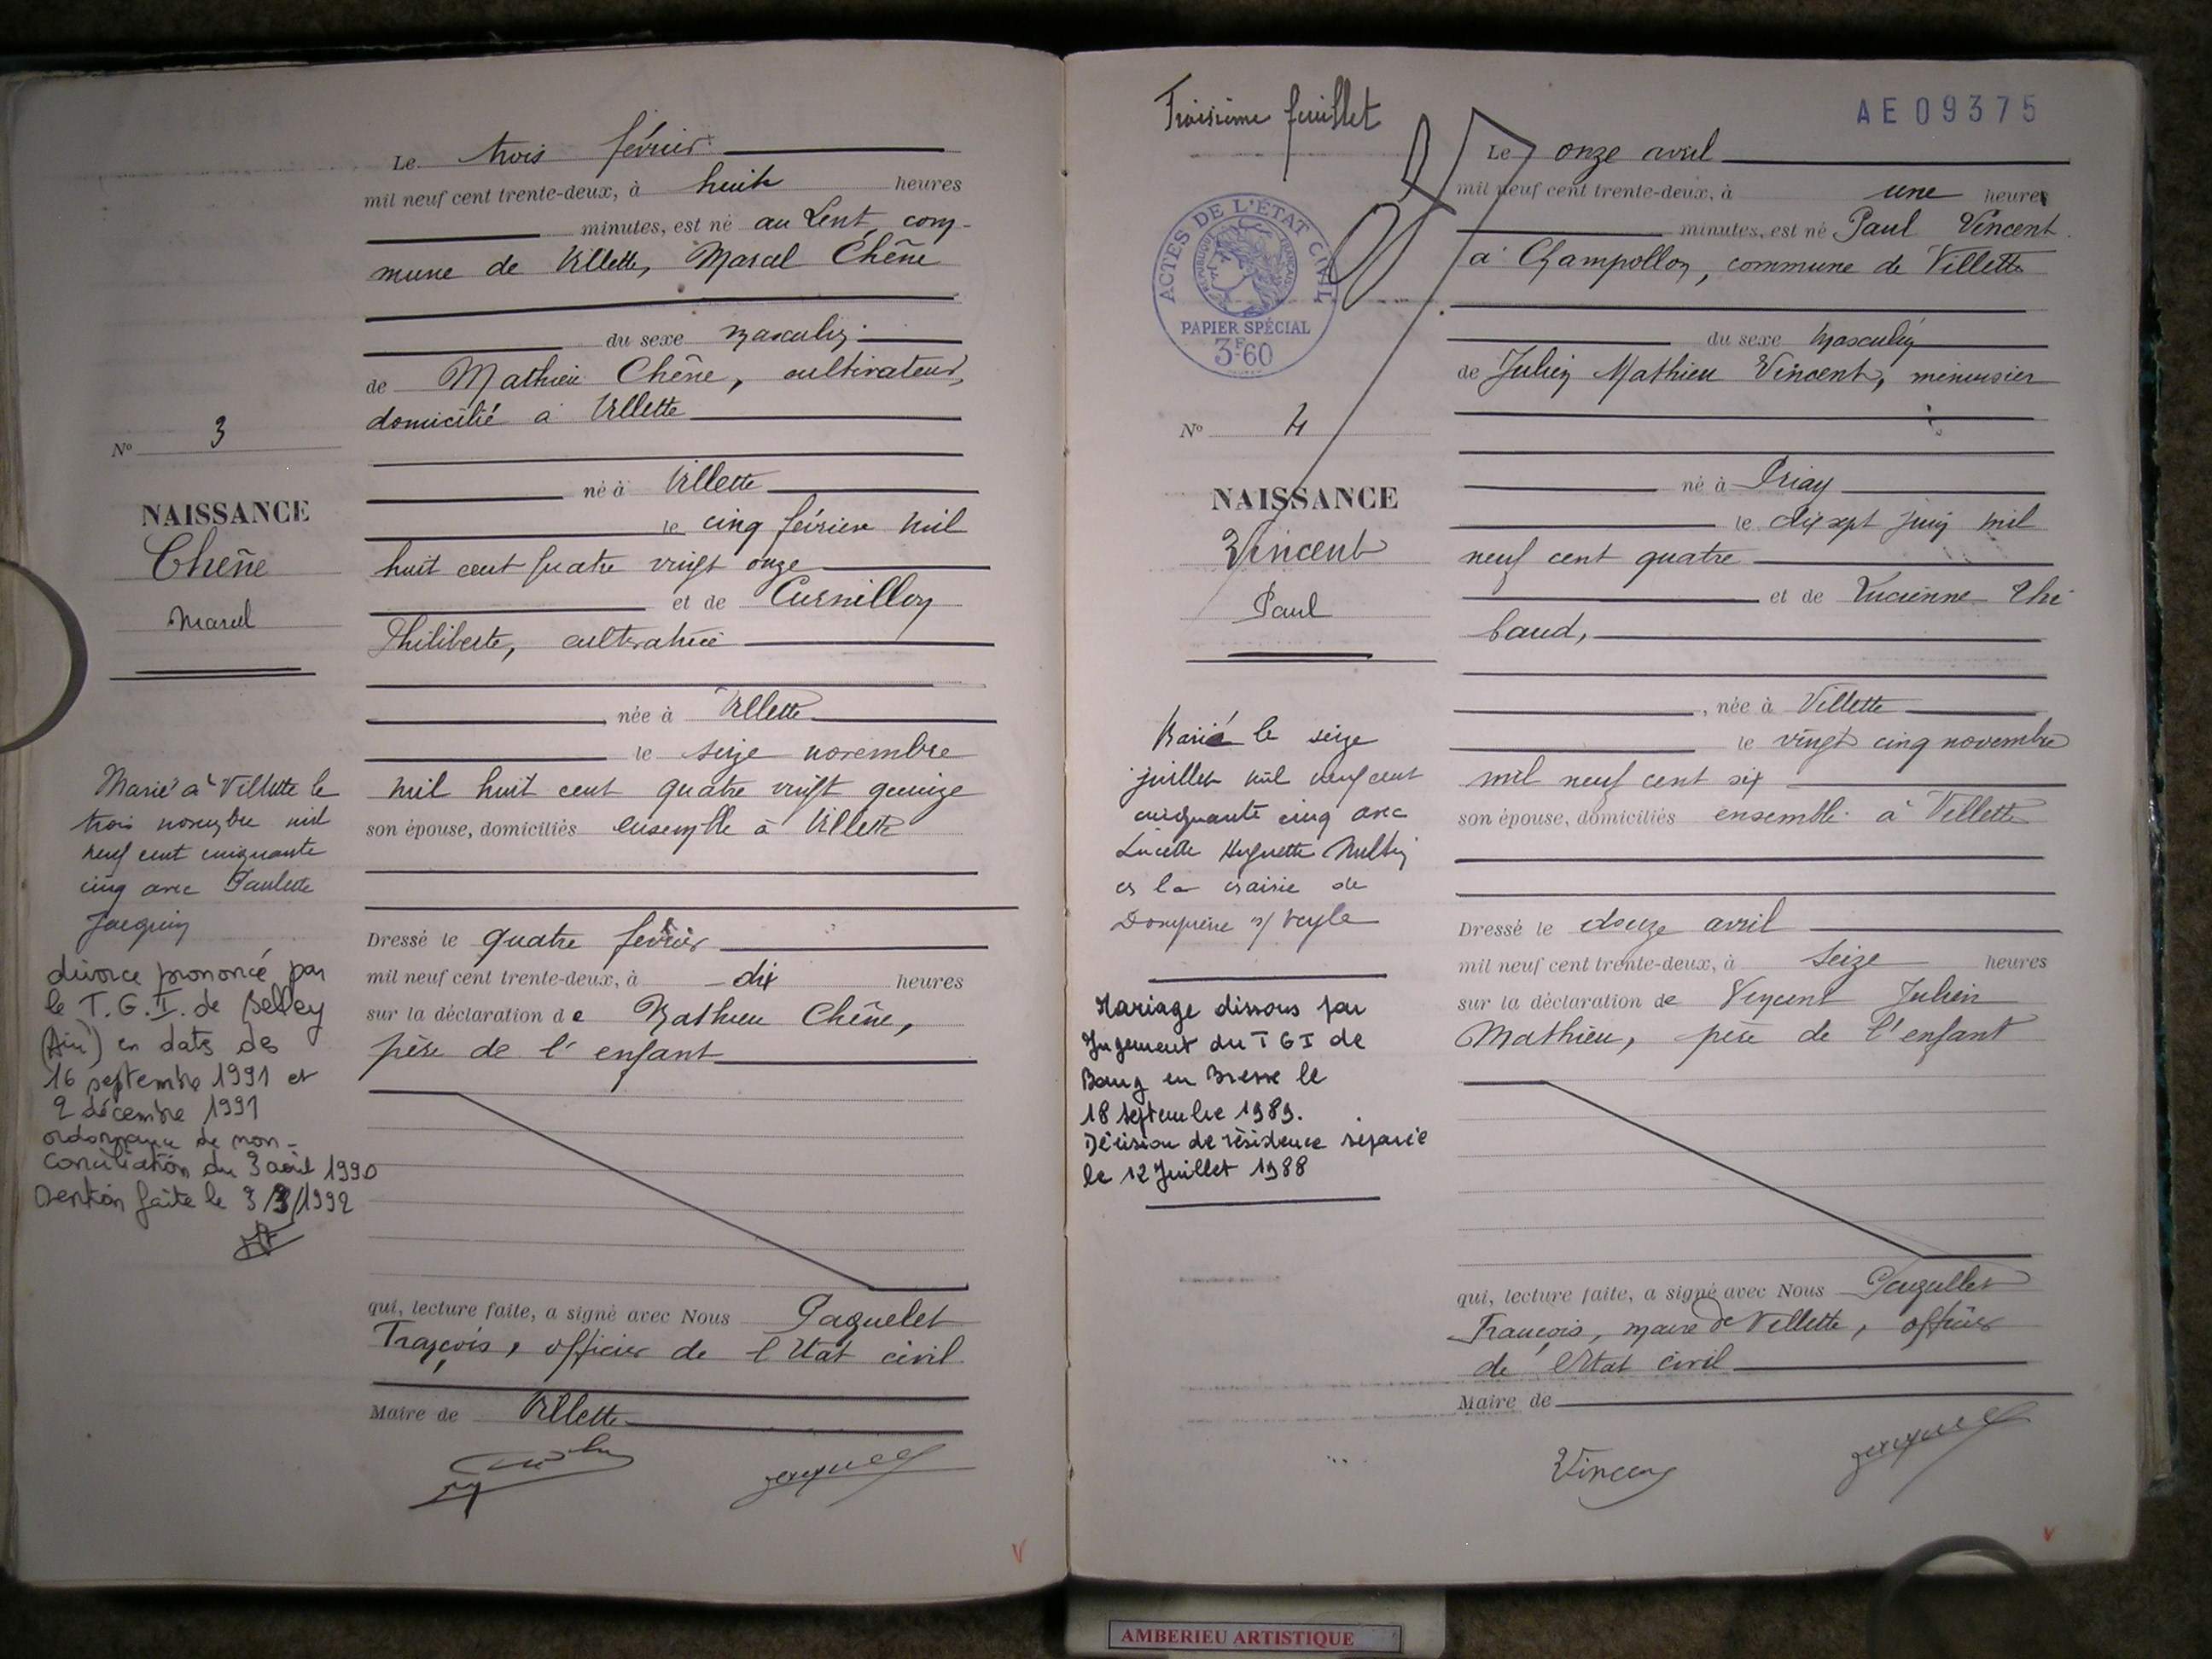 Le trois février
mil neuf cent trente-deux, à huit heures
minutes, est né au Lent, com-
mune de Villette, Marcel Chêne
du sexe masculin
de Mathieu Chêne, cultivateur,
domicilié à Villette
né à Villette
le cinq février mil
huit cent quatre vingt onze
et de Curnillon
Philiberte, cultivatrice
née à Villette
le seize novembre
mil huit cent quatre vingt quinze
son épouse, domiciliés ensemble à Villette
Dressé le quatre février
mil neuf cent trente-deux, à dix heures
sur la déclaration de Mathieu Chêne,
père de l'enfant
qui, lecture faite, a signé avec Nous
François, officier de l'Etat civil
Maire de Villette
No 3
NAISSANCE
Chêne
Marcel
Marié à Villette le
trois novembre mil
neuf cent cinquante
cinq avec Paulette
Jacquin
divorce prononcé par
le T.G.I. de Belley
(Ain) en date des
16 septembre 1991 et
2 décembre 1991
ordonnance de non-
conciliation du 3 août 1990
Mention faite le 3/3/1992
Troisième feuillet
AE09375
ACTES DE L'ÉTAT CIVIL
RÉPUBLIQUE FRANÇAISE
PAPIER SPÉCIAL
3F60
Le onze avril
mil neuf cent trente-deux, à une heure
minutes, est né Paul Vincent
à Champollon, commune de Villette
du sexe masculin
de Julien Mathieu Vincent, menuisier
né à Priay
le dix sept juin mil
neuf cent quatre
et de Lucienne Thi
baud,
, née à Villette
le vingt cinq novembre
mil neuf cent six
son épouse, domiciliés ensemble à Villette
Dressé le douze avril
mil neuf cent trente-deux, à seize heures
sur la déclaration de Vincent Julien
Mathieu, père de l'enfant
qui, lecture faite, a signé avec Nous
François, maire de Villette, officier
de l'Etat civil
Maire de
Vincent
No 4
NAISSANCE
Vincent
Paul
Marié le seize
juillet mil neuf cent
cinquante cinq avec
Lucette Huguette
en la mairie de
Dompierre s/ Veyle
Mariage dissous par
Jugement du TGI de
Bourg en Bresse le
18 septembre 1989.
Décision de résidence séparée
le 12 Juillet 1988
AMBERIEU ARTISTIQUE